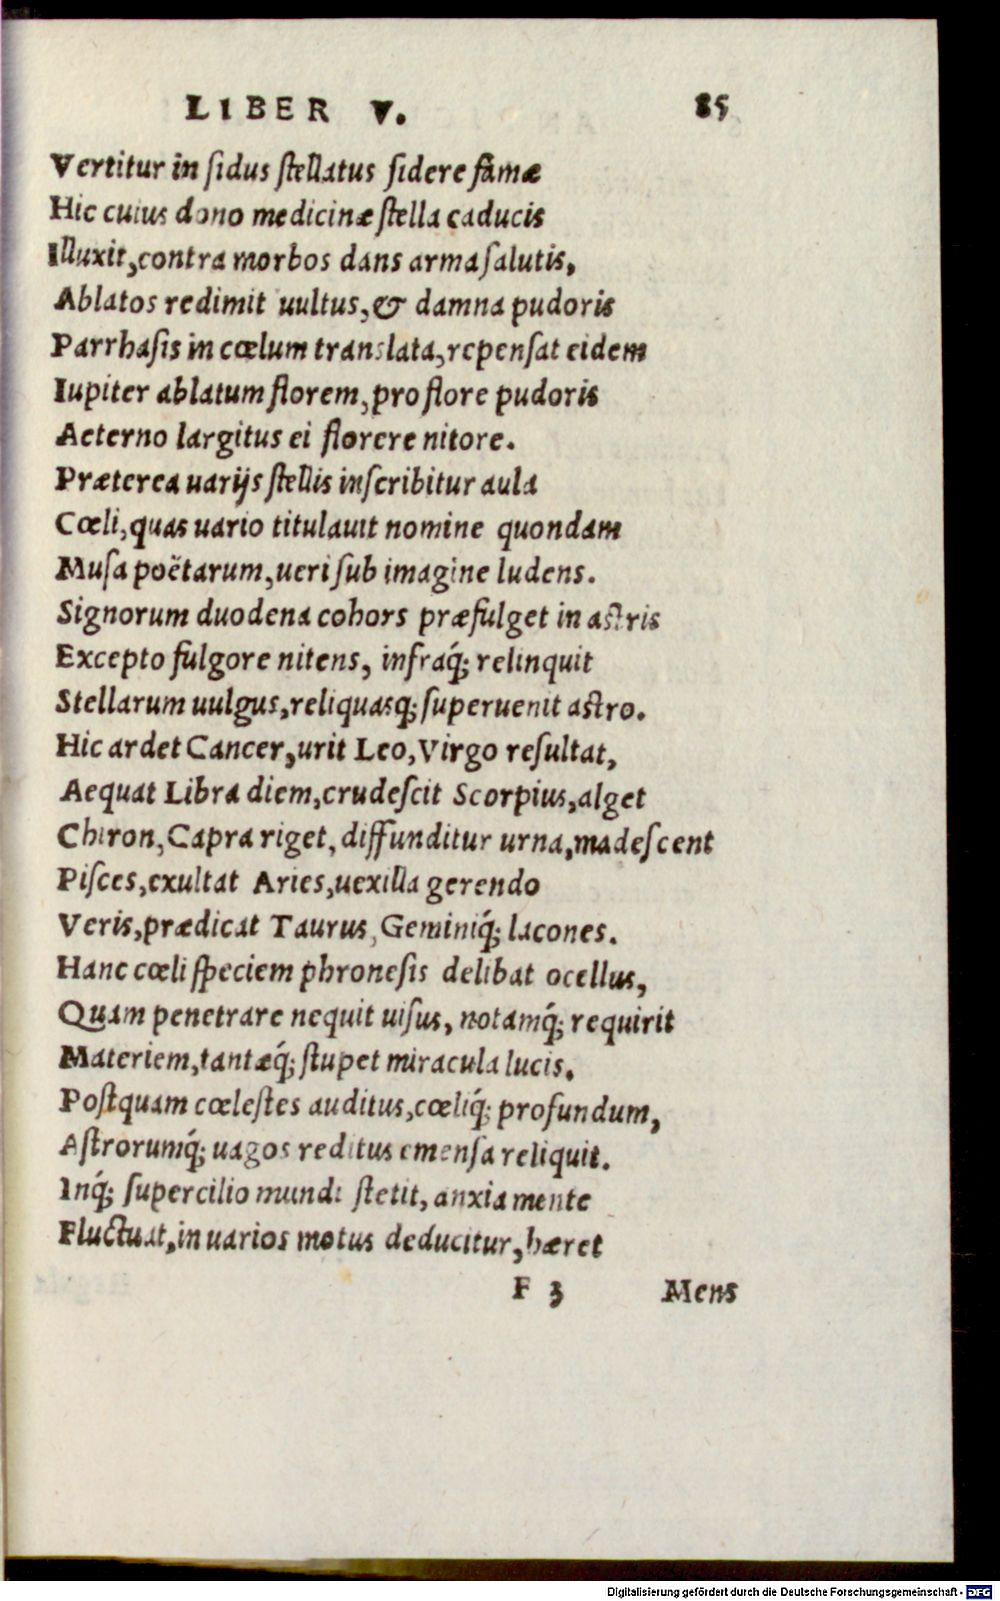 LIBER V. 85
Vertitur in ſidus ſtellatus ſidere famæ
Hic cuius dono medicinæ ſtella caducis
Illuxit, contra morbos dans arma ſalutis,
Ablatos redimit uultus, & damna pudoris
Parrhaſis in cœlum translata, repenſat eidem
Iupiter ablatum florem, pro flore pudoris
Aeterno largitus ei florere nitore.
Præterea uarijs ſtellis inſcribitur aula
Cœli, quas uario titulauit nomine quondam
Muſa poëtarum, ueri ſub imagine ludens.
Signorum duodena cohors præfulget in aſtris
Excepto fulgore nitens, infraq́; relinquit
Stellarum uulgus, reliquasq; ſuperuenit aſtro.
Hic ardet Cancer, urit Leo, Virgo reſultat,
Aequat Libra diem, crudeſcit Scorpius, alget
Chiron, Capra riget, diffunditur urna, madeſcent
Piſces, exultat Aries, uexilla gerendo
Veris, prædicat Taurus, Geminiq́; lacones.
Hanc cœli ſpeciem phroneſis delibat ocellus,
Quam penetrare nequit uiſus, notamq́; requirit
Materiem, tantæq́; ſtupet miracula lucis.
Poſtquam cœleſtes auditus, cœliq́; profundum,
Aſtrorumq́; uagos reditus emenſa reliquit.
Inq́; ſupercilio mundi ſtetit, anxia mente
Fluctuat, in uarios motus deducitur, hæret
F 3 Mens
Digitalisierung gefördert durch die Deutsche Forschungsgemeinschaft - DFG